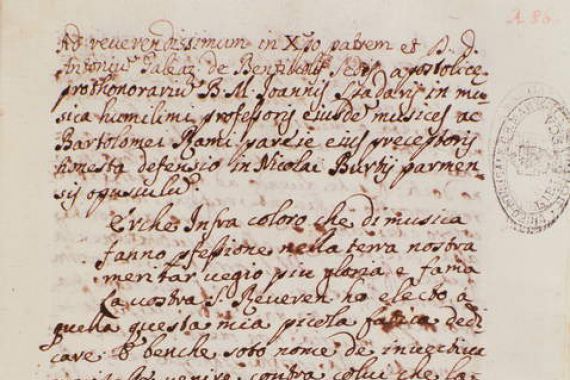 A. 86.
Ad reverendissimum in Xpo patrem et D. d.
Antonium Galeaz de Bentivolis Sedis apostolice
prothonorariũ B. M. Joannis Spadarii in mu-
sica humilimi professoris eiusdẽ musices ac
Bartolomei Rami pareie eius preceptoris
honesta defensio in Nicolai Burtii parmen-
sis opusculũ.
Perche Infra coloro che di musica
fanno pfessione nella terra nostra
meritar vegio piu gloria e fama
la vostra S. Reveren ho electo a
quella questa mia picola fatica dedi
care & benche soto nome de invectiva
contra colui che la-